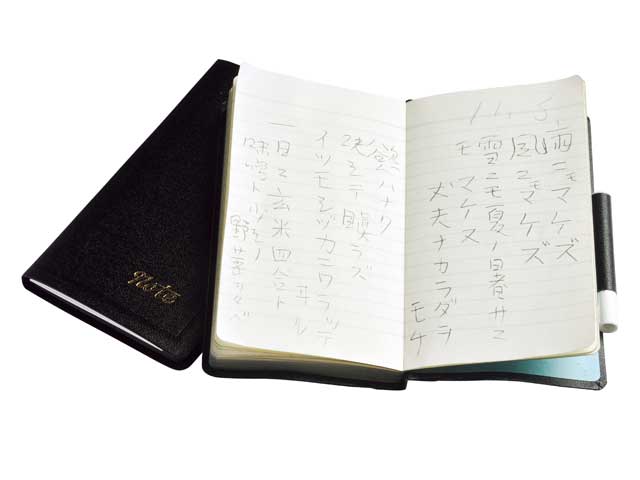 11.3.
雨ニモマケズ
風ニモマケズ
雪ニモ夏ノ暑サニ
モ マケヌ
丈夫ナカラダヲ
モチ
慾ハナク
決シテ瞋ラズ
イツモシヅカニワラッテ
ヰル
一日ニ玄米四合ト
味噌ト少シノ
野菜ヲタベ
Note